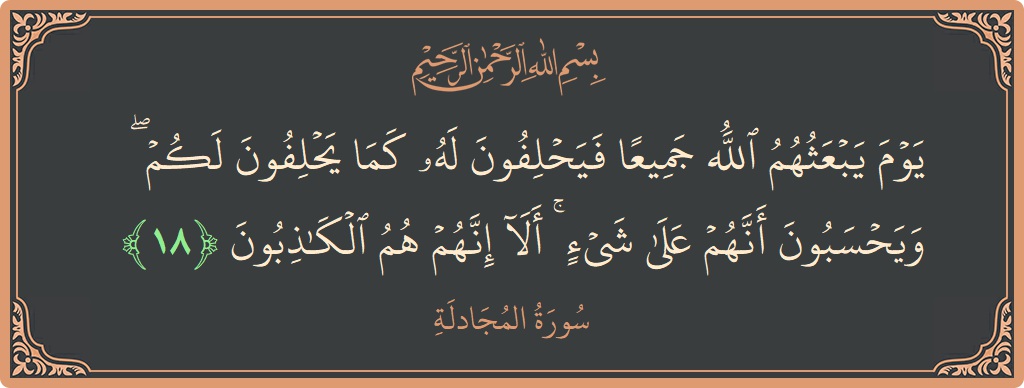 بِسْمِ اللهِ الرَّحْمٰنِ الرَّحِيْمِ
يَوْمَ يَبْعَثُهُمُ ٱللَّهُ جَمِيعًا فَيَحْلِفُونَ لَهُۥ كَمَا يَحْلِفُونَ لَكُمْ ۖ
وَيَحْسَبُونَ أَنَّهُمْ عَلَىٰ شَىْءٍ ۚ أَلَآ إِنَّهُمْ هُمُ ٱلْكَـٰذِبُونَ ﴿١٨﴾
سُورَةُ المُجَادلَةِ